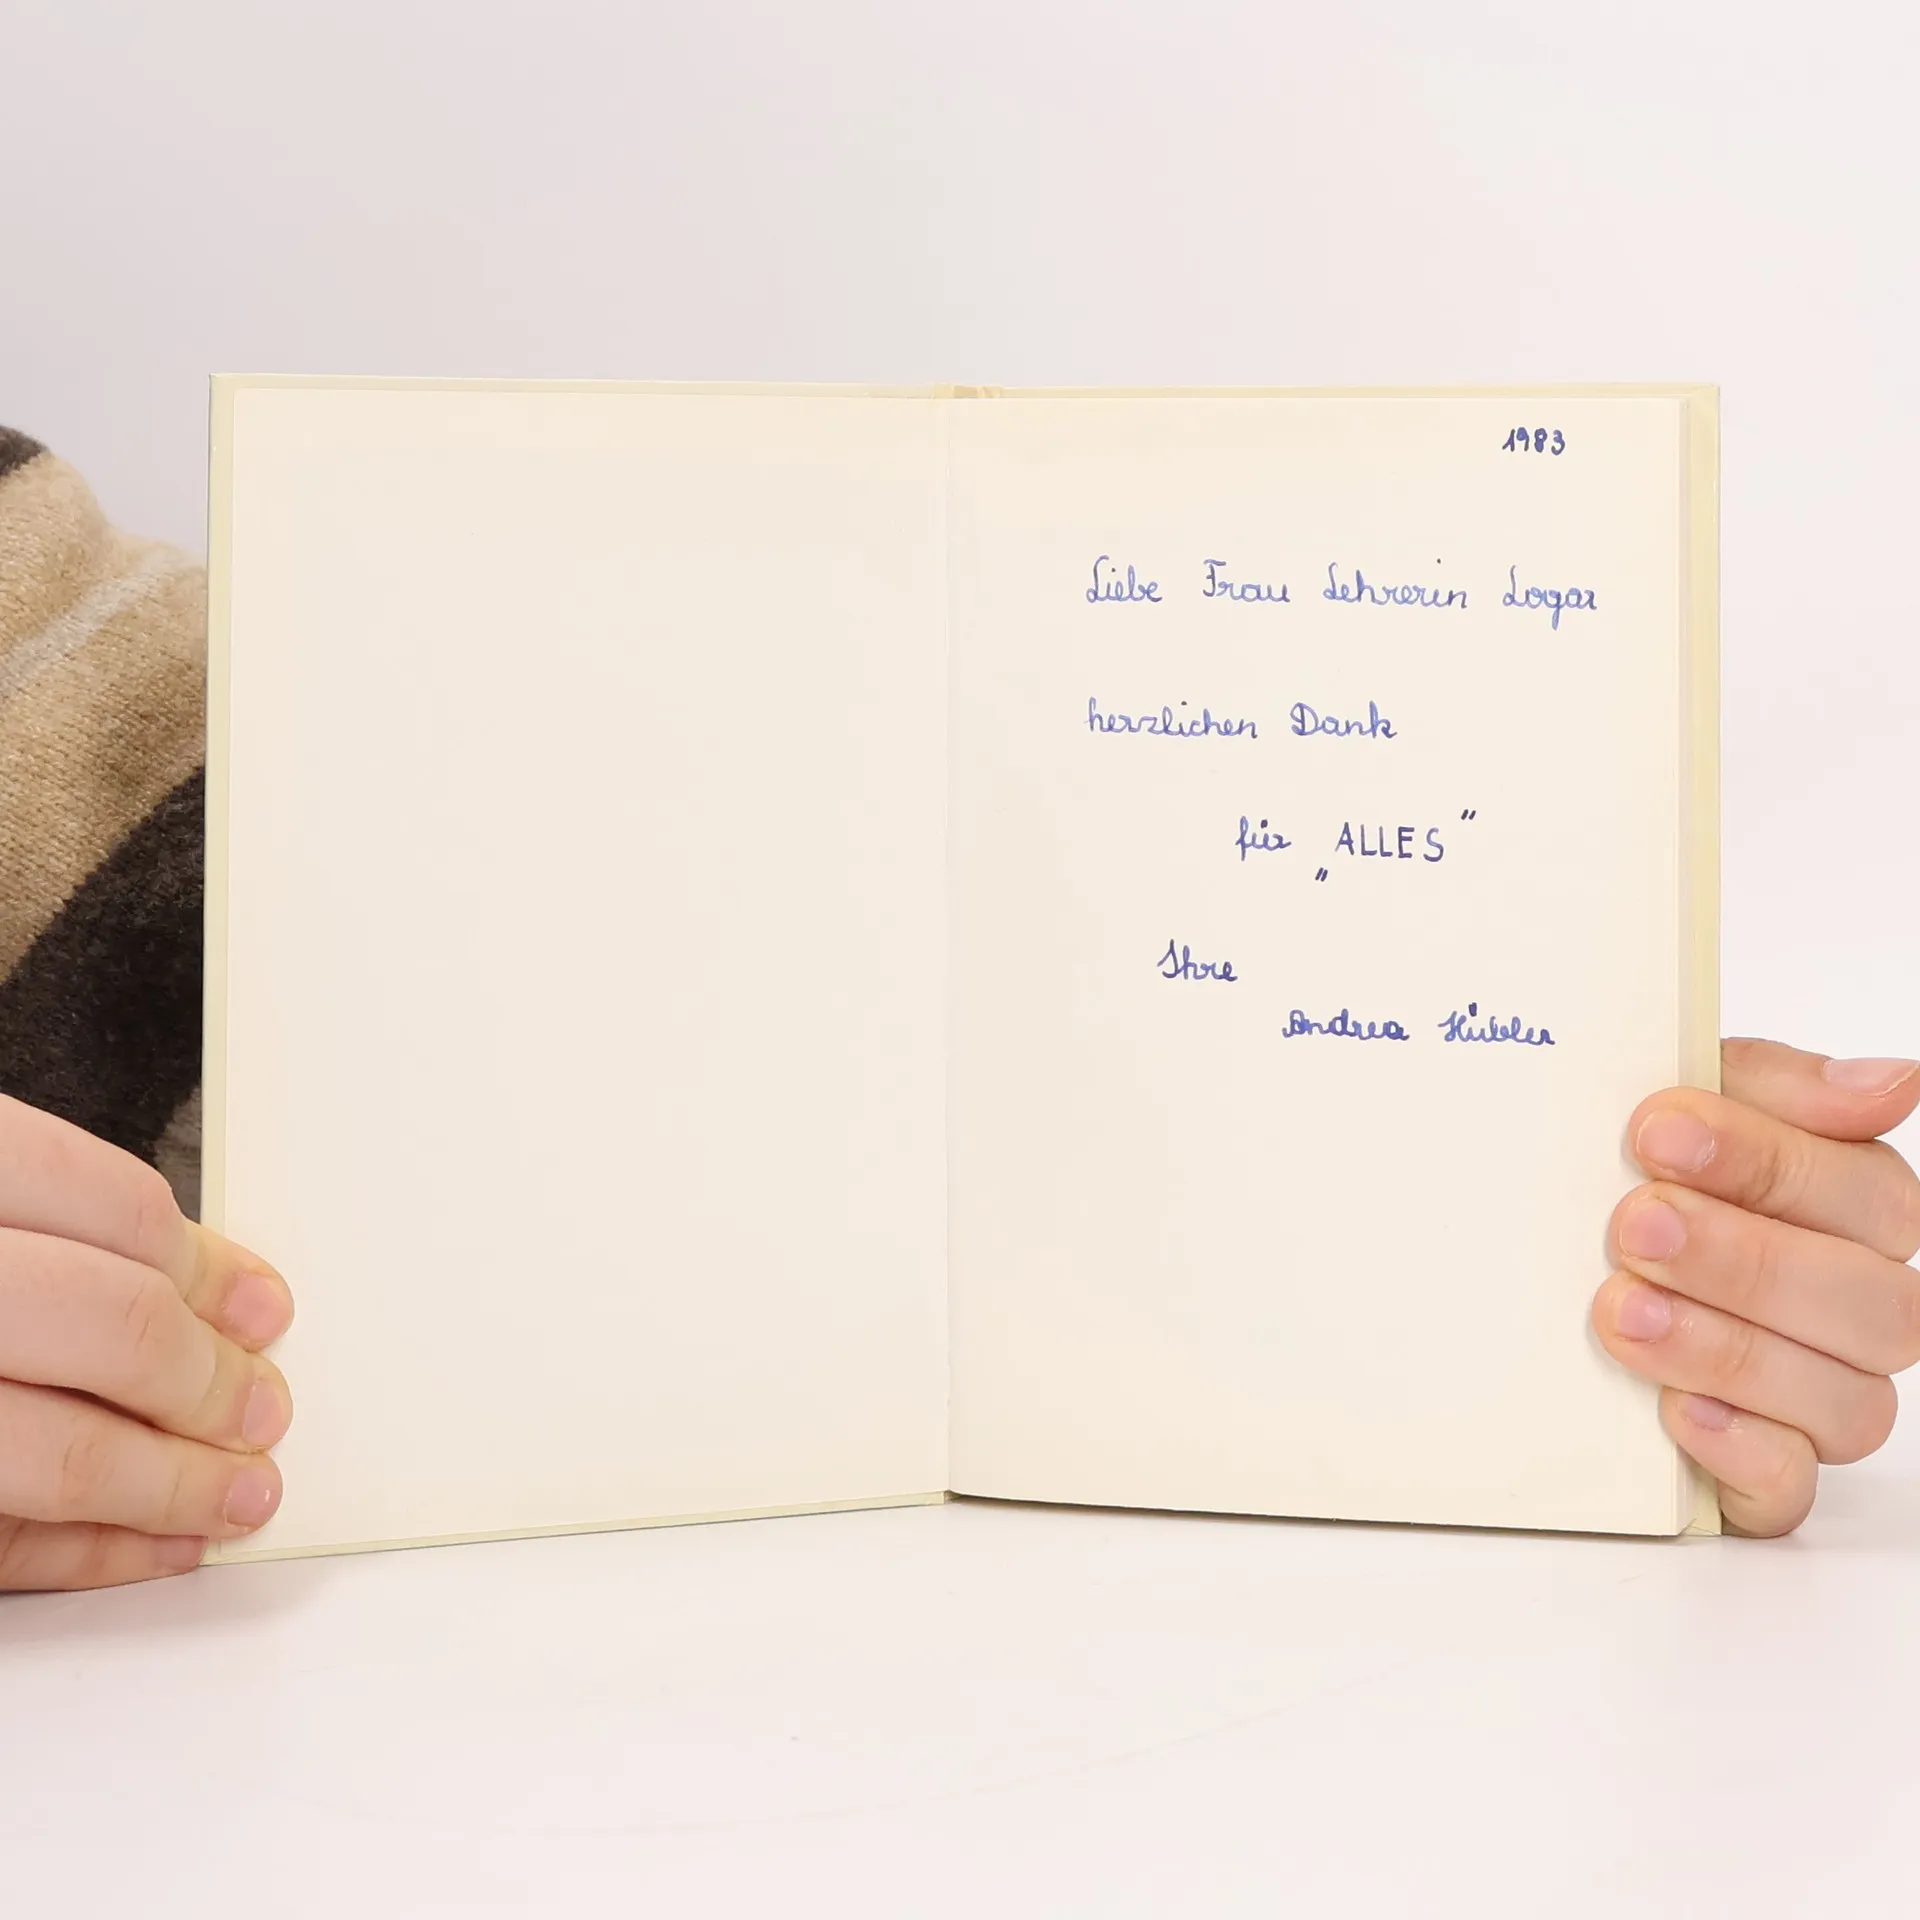 1983
Liebe Frau Lehrerin Logar
herzlichen Dank
für „ALLES"
Ihre
Andrea Hübler